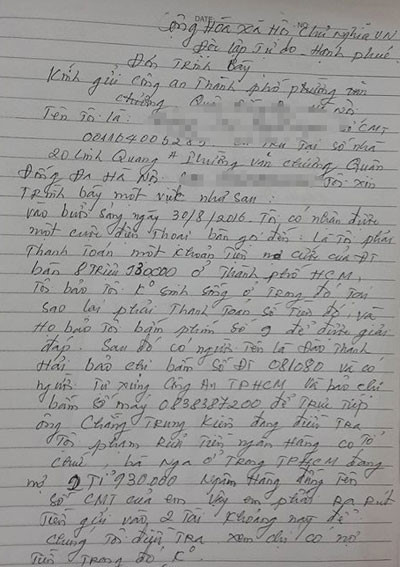 DATE NO
Cộng Hòa xã Hội Chủ nghĩa VN
Độc lập Tự do - Hạnh phúc
Đơn Trình bày
Kính gửi công an Thành phố phường văn
chương Quận Nội
Tên Tôi là: Số CMT
Trú Tại số nhà
20 Linh Quang A Phường văn chương Quận
Đống Đa Hà Nội. Tôi xin
Trình bày một việc như sau:
vào buổi sáng ngày 30/8/2016. Tôi có nhận được
một cuộc điện Thoại bàn gọi đến: là Tôi phải
Thanh Toán một khoản Tiền nợ cước của ĐT
bàn 8 Triệu 930000 ở Thành phố HCM,
Tôi bảo Tôi K° sinh sống ở Trong đó Tại
sao lại phải Thanh Toán số Tiền đó, và
Họ bảo Tôi bấm phím số 9 để được giải
đáp. Sau đó có người Tên là Đào Thanh
Hải bảo chị bấm số ĐT 081080 và có
người Tự xưng Công An TPHCM và bảo chị
bấm số máy 0838387200 để Trực Tiếp
ông Chằng Trung Kiên đang điều Tra
Tội phạm Rửa Tiền ngân Hàng có Tổ
chức, bà Nga ở Trong TPHCM đang
nợ 2 Tỉ 930.000 Ngân Hàng đứng Tên
số CMT của em vậy em phải Ra Rút
Tiền gửi vào 2 Tài Khoảng này để
chúng Tôi điều Tra xem chị có nợ
Tiền Trong đó K°.